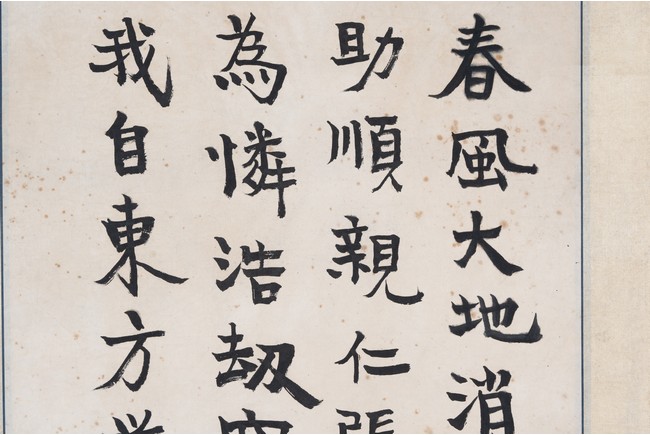 春風大地消
助順親仁
為憐浩劫
我自東方